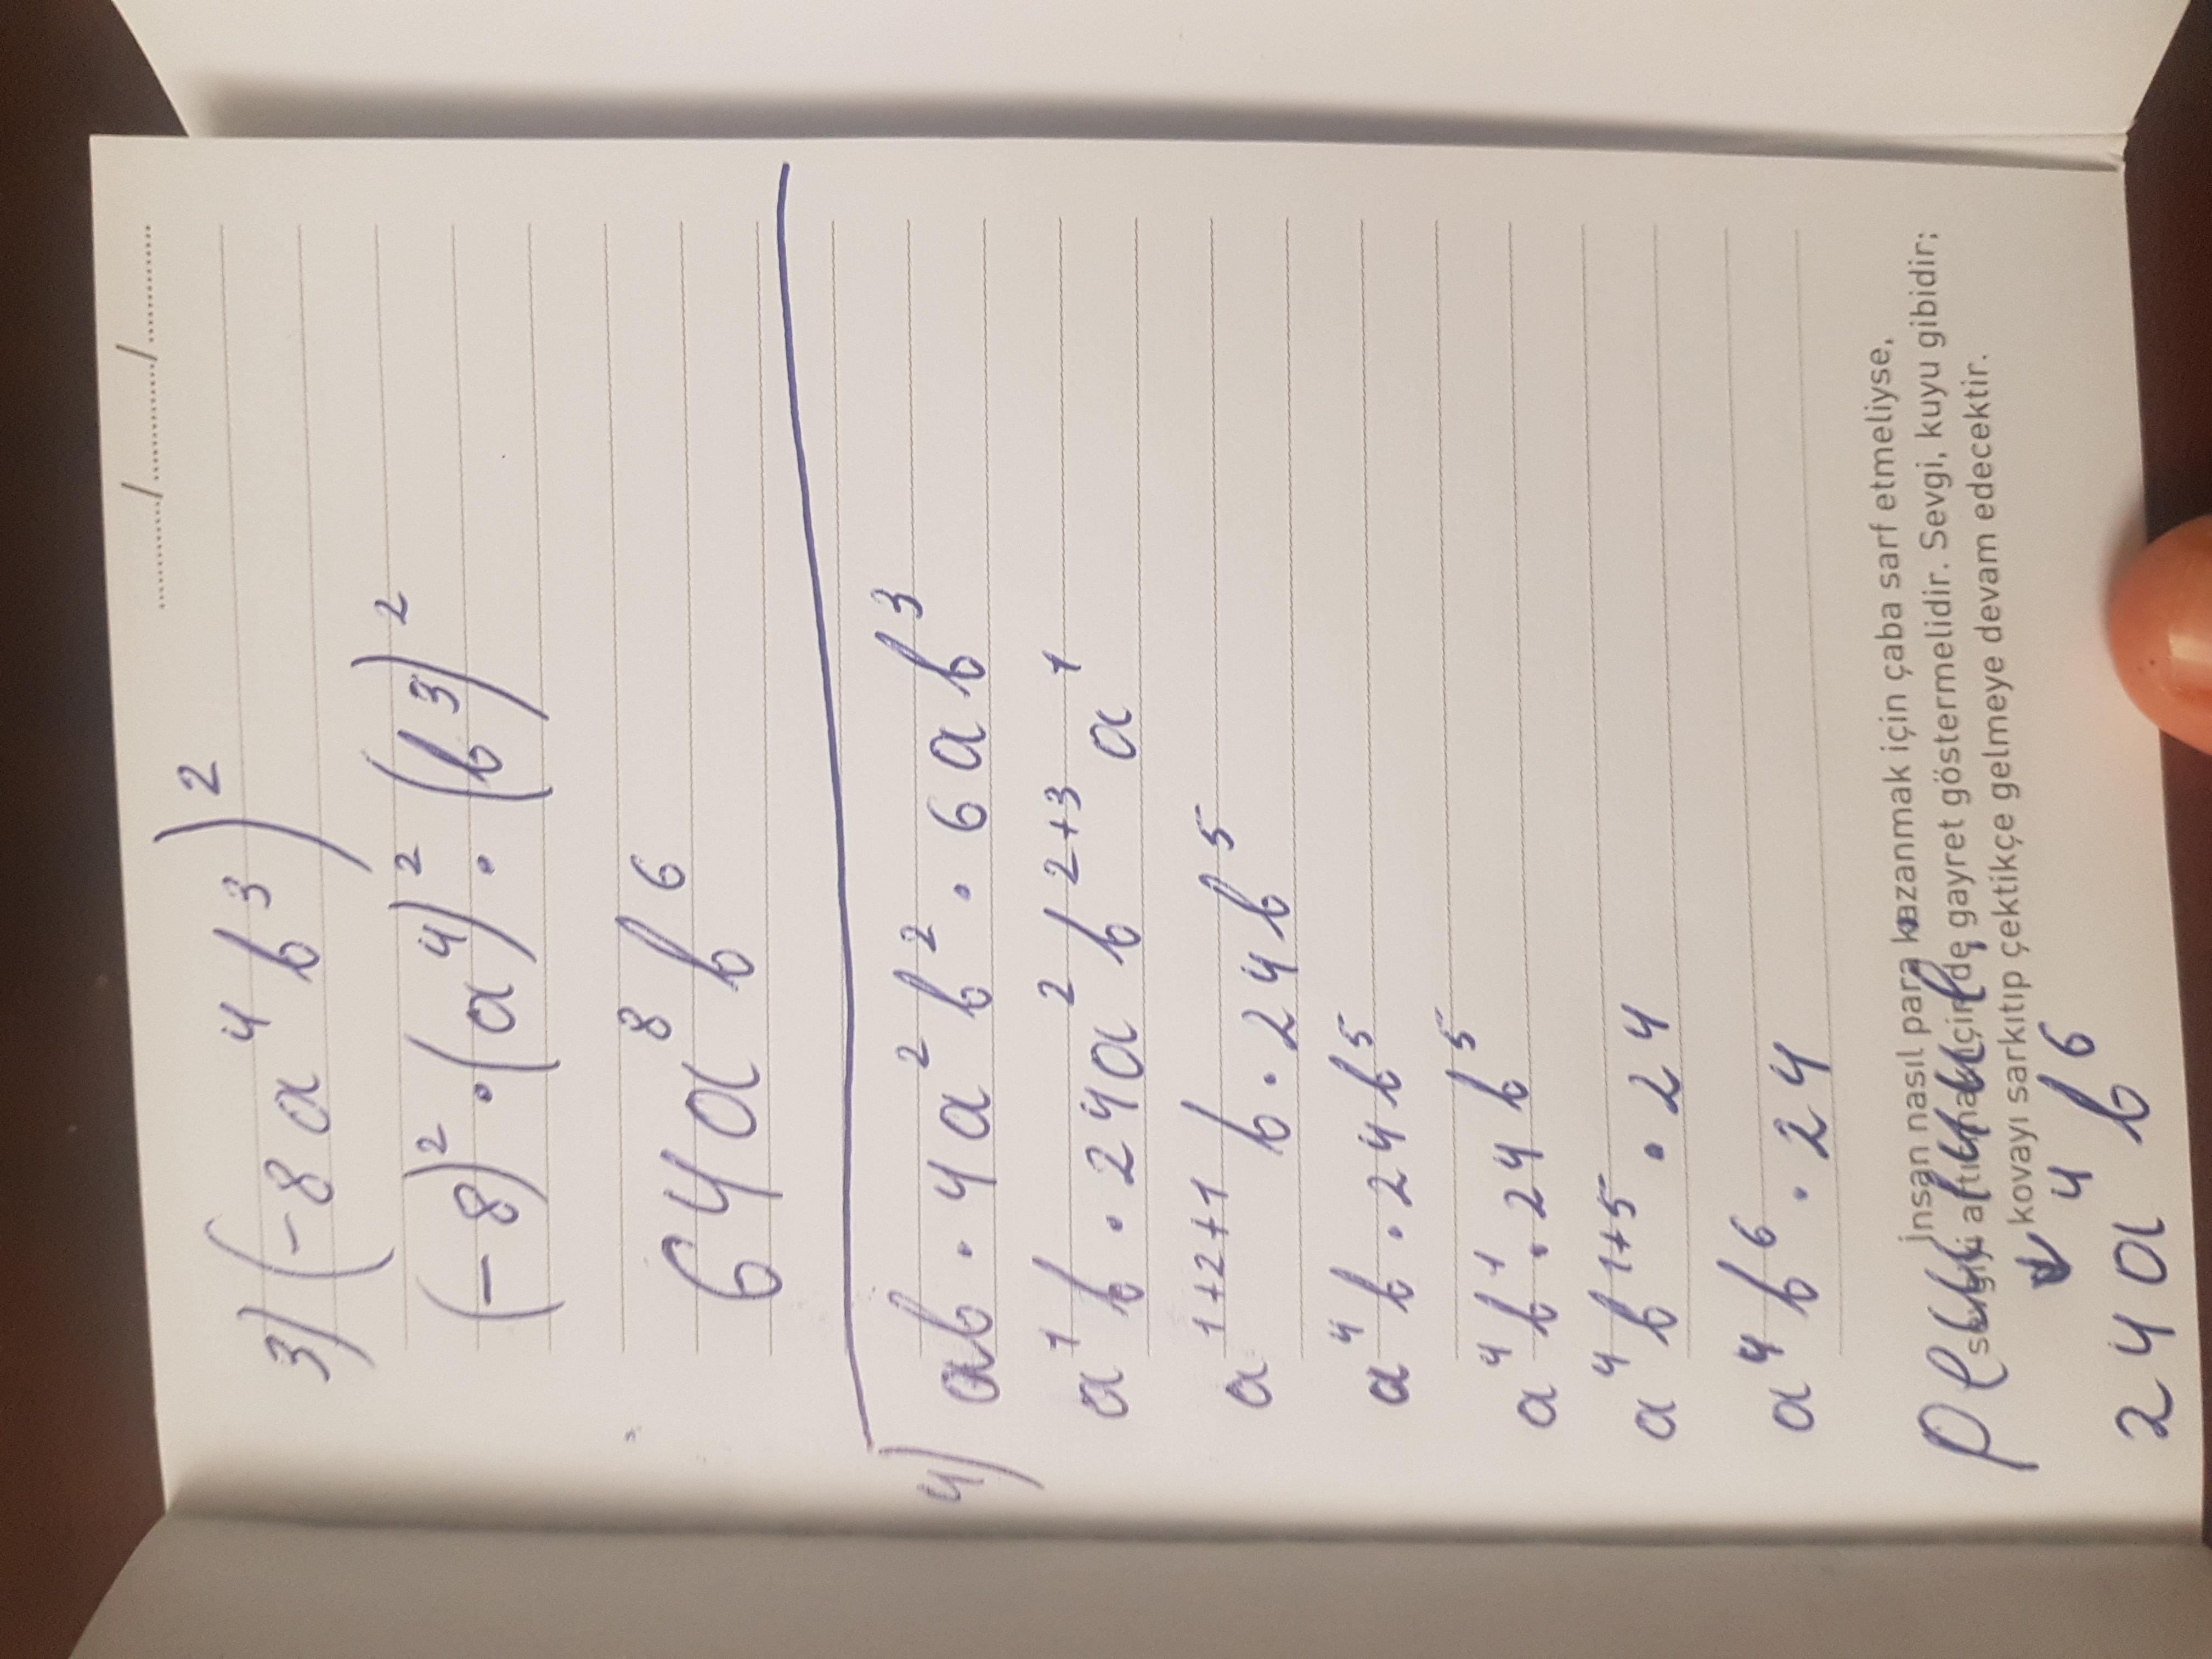 ........../............/............
3) (-8a⁴b³)²
(-8)²·(a⁴)²·(b³)²
64a⁸b⁶
4) ab·4a²b²·6ab³
a¹b·24a²b²⁺³a¹
a¹⁺²⁺¹b·24b⁵
a⁴b·24b⁵
a⁴b¹·24b⁵
a⁴b¹⁺⁵·24
a⁴b⁶·24
İnsan nasıl para kazanmak için çaba sarf etmeliyse,
sevgiyi arttırmak için de gayret göstermelidir. Sevgi, kuyu gibidir;
kovayı sarkıtıp çektikçe gelmeye devam edecektir.
24a⁴b⁶